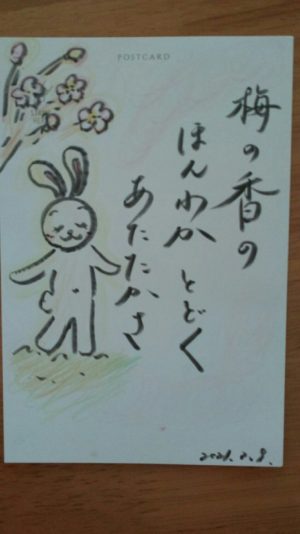 POSTCARD
梅の香の
ほんわか とどく
あたたかさ
2021.2.8.